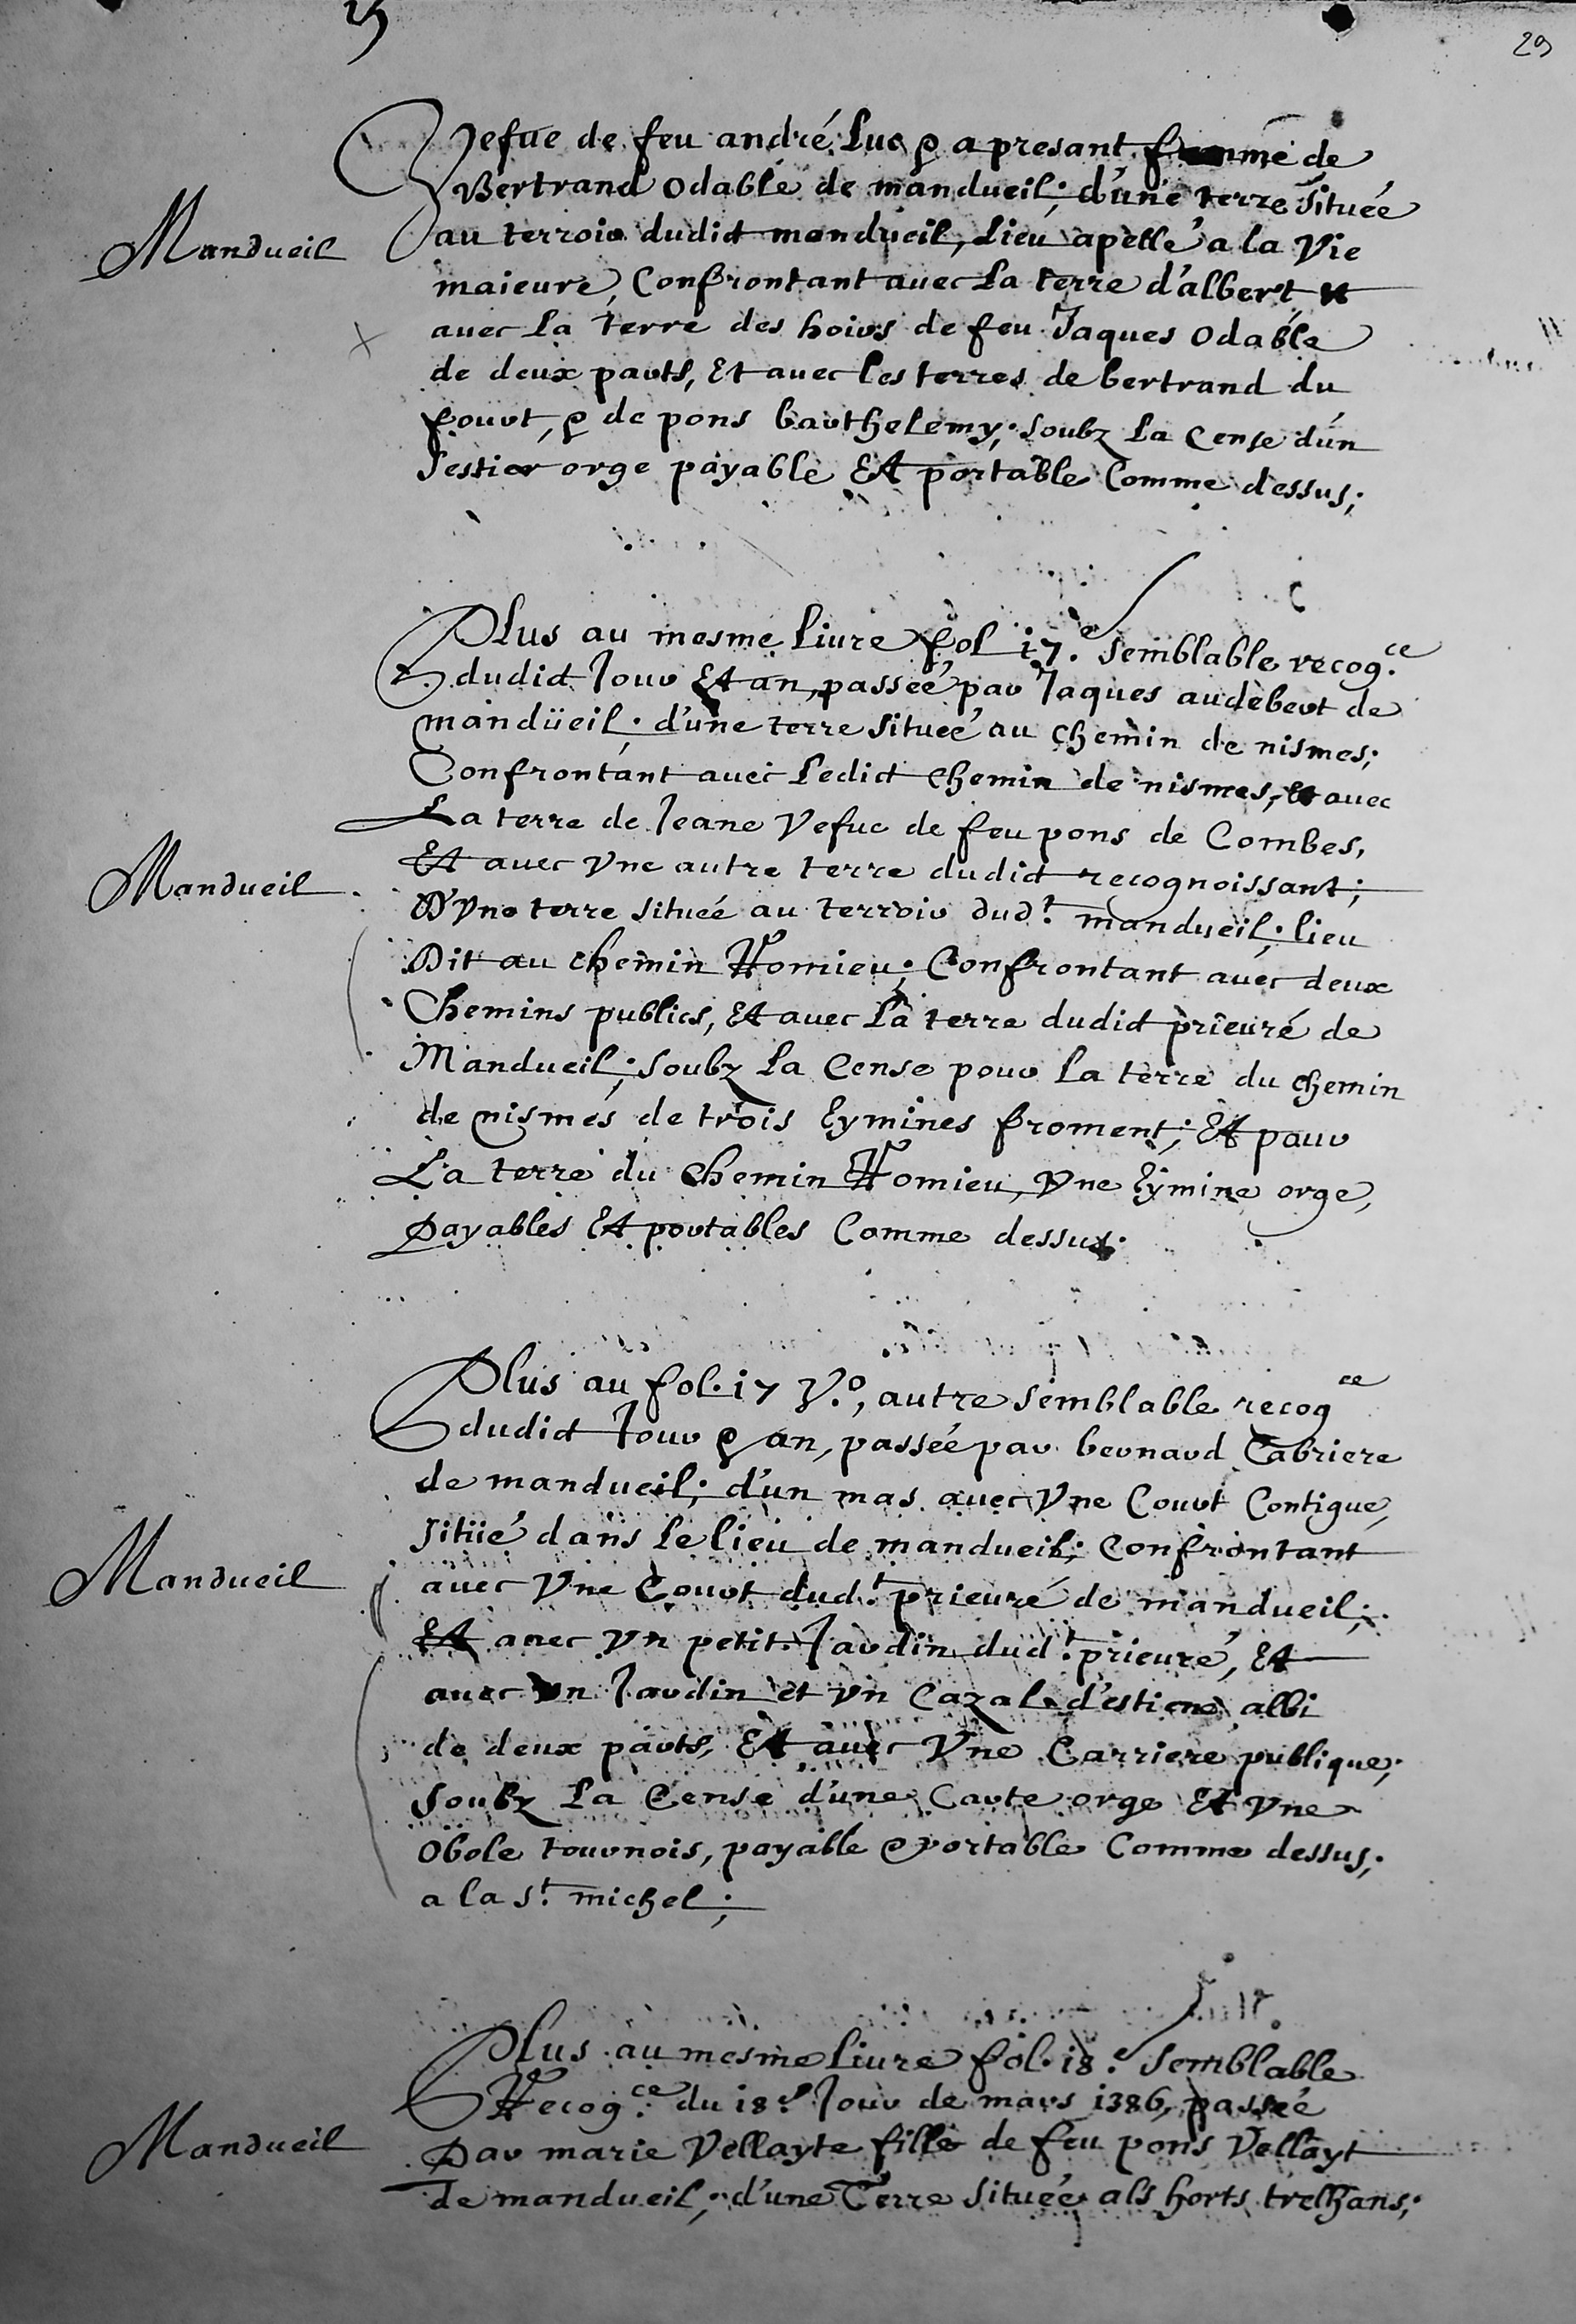 29
Vefue de feu andré Luc & a presant femme de
Bertrand Odable de mandueil; d'une terre située
Mandueil
au terroir dudict mandueil, Lieu apellé a la Vie
maieure, Confrontant auec La terre d'albert, et
auec La terre des hoirs de feu Jaques Odable
de deux parts, Et auec les terres de bertrand du
fourt, & de pons barthelemy; soubz La Cense d'un
sestier orge payable Et portable Comme dessus;
Plus au mesme Liure fol 17.e semblable recog.ce
dudict Jour Et an, passeé par Jaques audebert de
mandüeil; d'une terre situeé au chemin de nismes;
Confrontant auec Ledict chemin de nismes, Et auec
La terre de Jeane Vefue de feu pons de Combes,
Et auec Vne autre terre dudict recognoissant;
Mandueil
D'Vne terre situeé au terroir dud.t mandueil; lieu
Dit au chemin Romieu; Confrontant auec deux
Chemins publics, Et auec La terre dudict prieuré de
Mandueil; soubz La Cense pour La terre du chemin
de nismes de trois Eymines froment; Et pour
La terre du Chemin Romieu, Vne Eymine orge,
Payables Et portables Comme dessus.
Plus au fol. 17 V.o, autre semblable recog.ce
dudict Jour & an, passée par bernard Cabriere
de mandueil; d'un mas auec Vne Court Contigue,
sitüé dans Le lieu de mandueil; Confrontant
Mandueil
auec Vne Court dud.t prieuré de mandueil;
Et auec Vn petit Jardin dud.t prieuré, Et
auec Vn Jardin et Vn Cazal d'estiene albi
de deux parts, Et auec Vne Carriere publique;
Soubz La Cense d'une Carte orge Et Vne
Obole tournois, payable & portable Comme dessus;
a la s.t michel;
Plus au mesme Liure fol. 18.e semblable
Recog.ce du 18.e Jour de mars 1386, passeé
Mandueil
Par marie Vellayte fille de feu pons Vellayt
de mandueil; d'une Terre Située als horts trelhans;